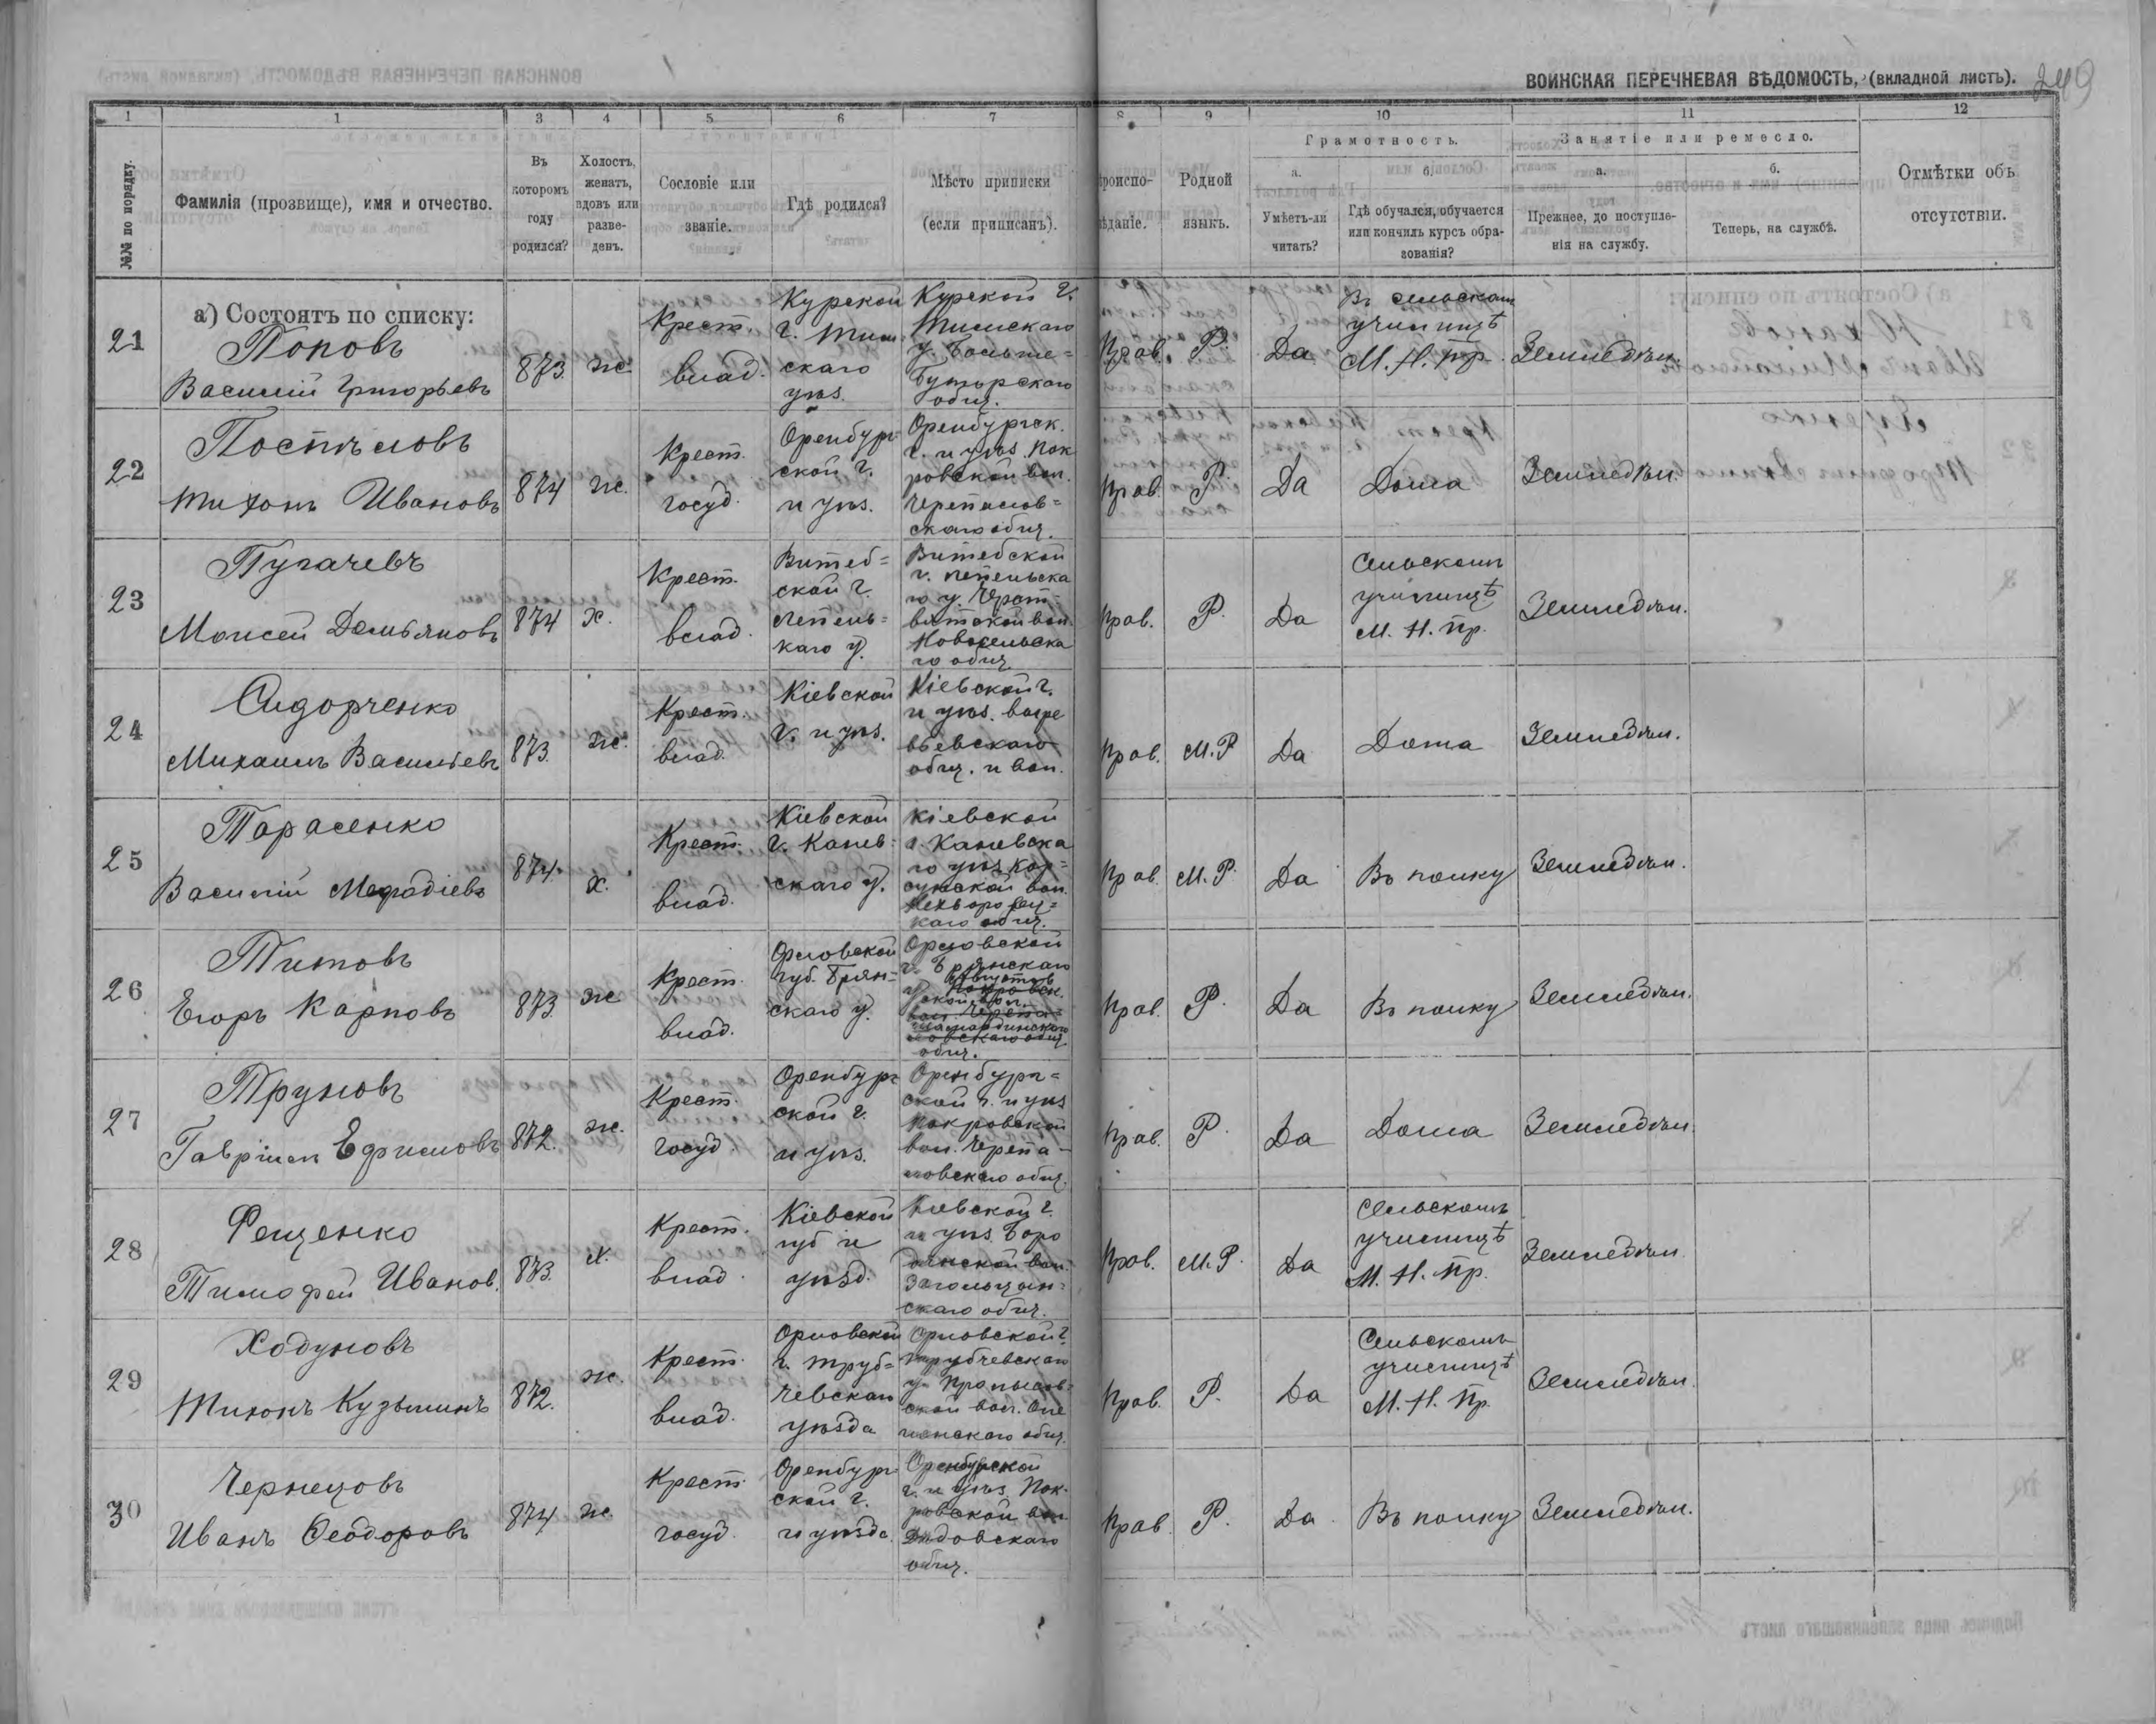 ВОИНСКАЯ ПЕРЕЧНЕВАЯ ВѢДОМОСТЬ, (вкладной листъ). 249
1 1 3 4 5 6 7 8 9 10 11 12
№№ по порядку.
Фамилія (прозвище), имя и отчество.
Въ которомъ году родился?
Холостъ, женатъ, вдовъ или разведенъ.
Сословіе или званіе.
Гдѣ родился?
Мѣсто приписки (если приписанъ).
роиспо-
ѣданіе.
Родной языкъ.
Грамотность.
а. Умѣетъ-ли читать?
б. Гдѣ обучался, обучается или кончилъ курсъ образованія?
Занятіе или ремесло.
а. Прежнее, до поступленія на службу.
б. Теперь, на службѣ.
Отмѣтки объ отсутствіи.
а) Состоятъ по списку:
21
Поповъ
Василій Григорьевъ
873. ж.
Крест.
влад.
Курской
г. Тим
скаго
уѣз.
Курской г.
Тимскаго
у. Больше=
Бутырскаго
общ.
Прав. Р. Да
Въ сельском
училищѣ
М. Н. Пр.
Земледѣл.
22
Поспѣловъ
Тихонъ Ивановъ
874 ж.
Крест.
госуд.
Оренбург
ской г.
и уѣз.
Оренбургск.
г. и уѣз. Пок
ровской вол.
Черепанов=
скаго общ.
Прав. Р. Да Дома Земледѣл.
23
Пугачевъ
Моисей Демьяновъ
874 х.
Крест.
влад.
Витеб=
ской г.
Лепель=
каго у.
Витебской
г. Лепельска
го у.
вол.
Новосельска
го общ.
Прав. Р. Да
Сельскомъ
училищѣ
М. Н. Пр.
Земледѣл.
24
Сидорченко
Михаилъ Васильевъ
873. ж.
Крест.
влад.
Кіевской
г. и уѣз.
Кіевской г.
и уѣз.
общ. и вол.
Прав. М.Р. Да Дома Земледѣл.
25
Тарасенко
Василій Мефодіевъ
874. х.
Крест.
влад.
Кіевской
г. Канев=
скаго у.
Кіевской
г. Каневска
го уѣз. Кор=
сунской вол.
каго общ.
Прав. М.Р. Да Въ полку Земледѣл.
26
Титовъ
Егоръ Карповъ
873. ж.
Крест.
влад.
Орловской
губ. Брян=
скаго у.
Орловской
г. Брянскаго
у.
общ.
Прав. Р. Да Въ полку Земледѣл.
27
Труновъ
Гавріилъ Ефимовъ
872. ж.
Крест.
госуд.
Оренбург
ской г.
и уѣз.
Оренбург=
ской г. и уѣз
Покровской
вол. Черепа-
новскаго общ.
Прав. Р. Да Дома Земледѣл.
28
Фещенко
Тимофей Иванов.
873. х.
Крест.
влад.
Кіевской
губ. и
уѣзд.
Кіевской г.
и уѣз. Боро
дянской вол.
Загальцын-
скаго общ.
Прав. М.Р. Да
Сельскомъ
училищѣ
М. Н. Пр.
Земледѣл.
29
Ходуновъ
Тихонъ Кузьминъ
872. ж.
Крест.
влад.
Орловской
г. Труб=
чевскаго
уѣзда
Орловской г.
Трубчевскаго
у.
вол.
общ.
Прав. Р. Да
Сельскомъ
училищѣ
М. Н. Пр.
Земледѣл.
30
Чернецовъ
Иванъ Ѳеодоровъ
874 ж.
Крест.
госуд.
Оренбург
ской г.
и уѣзда
Оренбургской
г. и уѣз. Пок-
ровской вол.
Дѣдовскаго
общ.
Прав. Р. Да. Въ полку Земледѣл.